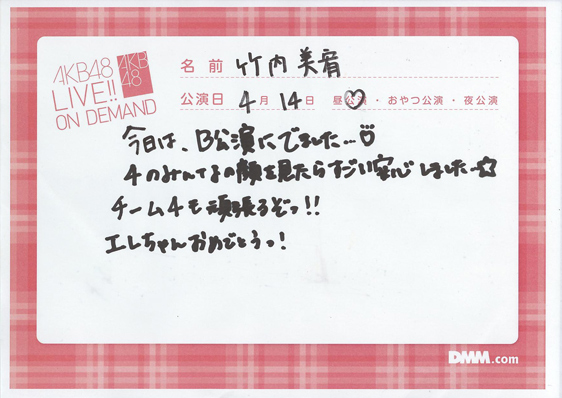 AKB48
LIVE!!
ON DEMAND
AKB
48
名前 竹内美宥
公演日 4月14日 昼公演・おやつ公演・夜公演
今日は、B公演にでました...
4のみんなの顔を見たらすごい安心しました☆
チーム4も頑張るぞっ!!
エレちゃんおめでとうっ!
DMM.com